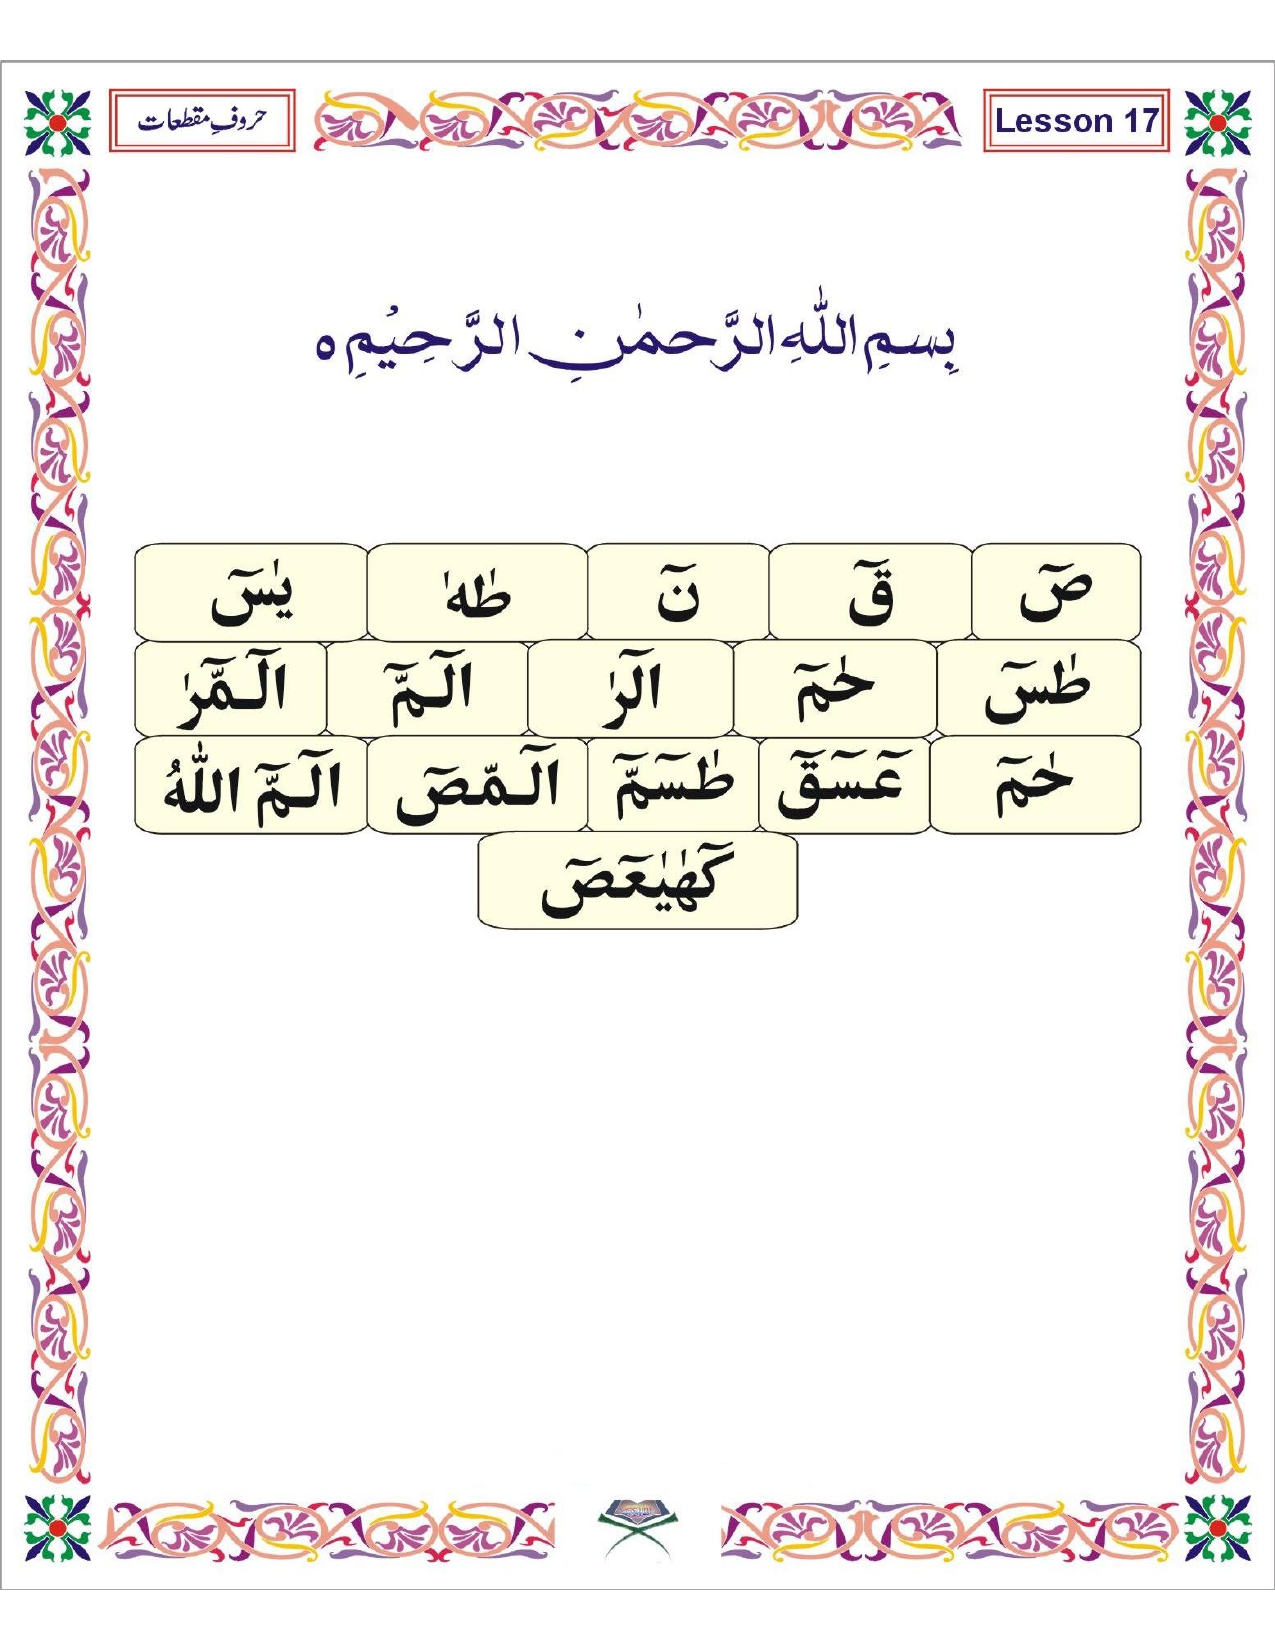 حروفِ مقطعات
Lesson 17
بِسمِ اللّٰهِ الرَّحمٰنِ الرَّحِيْمِ ه
صٓ قٓ نٓ طٰهٰ يٰسٓ
طٰسٓ حٰمٓ الٓرٰ الٓمّٓ الٓمّٓرٰ
حٰمٓ عٓسٓقٓ طٰسٓمّٓ الٓمّٓصٓ الٓمَّٓ اللّٰهُ
كٓهٰيٰعٓصٓ